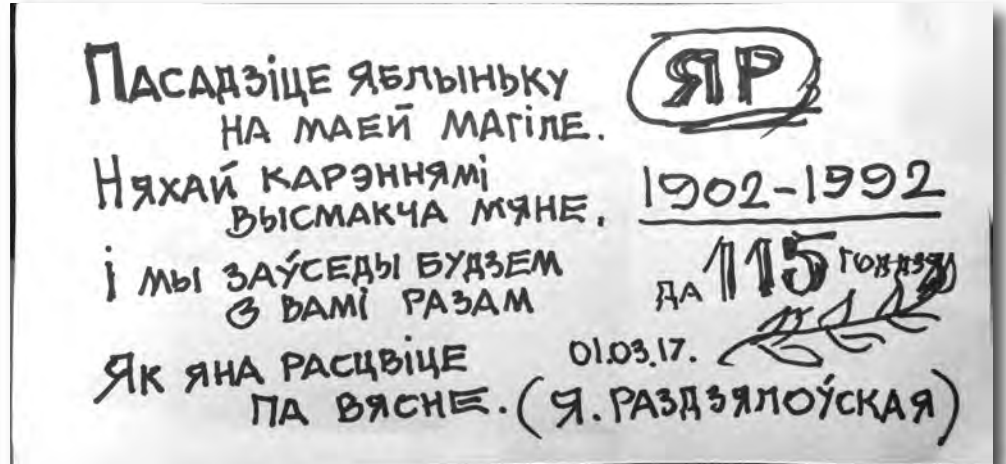 Пасадзіце яблыньку
на маей магіле.
Няхай карэннямі
высмакча мяне.
І мы заўседы будзем
з вамі разам
Як яна расцвіце
па вясне. (Я. Раздзялоўская)
ЯР
1902-1992
да 115 годдзя
01.03.17.